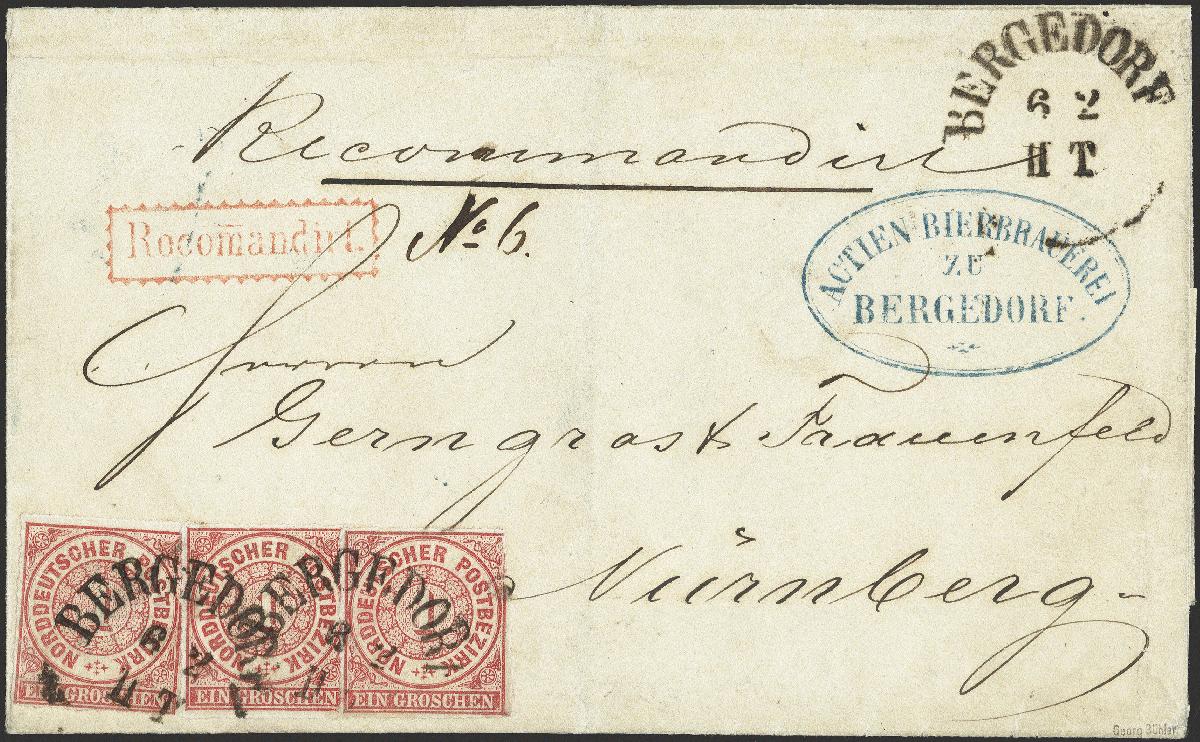 BERGEDORF
6 2
II T
Recommandirt
Recom̄andirt.
No 6.
ACTIEN BIERBRAUEREI
ZU
BERGEDORF.
Herren
Gerngros & Frauenfeld
Nürnberg
NORDDEUTSCHER POSTBEZIRK
EIN GROSCHEN
NORDDEUTSCHER POSTBEZIRK
EIN GROSCHEN
NORDDEUTSCHER POSTBEZIRK
EIN GROSCHEN
BERGEDORF
6 2
II T
BERGEDORF
6 2
II
Georg Bühler